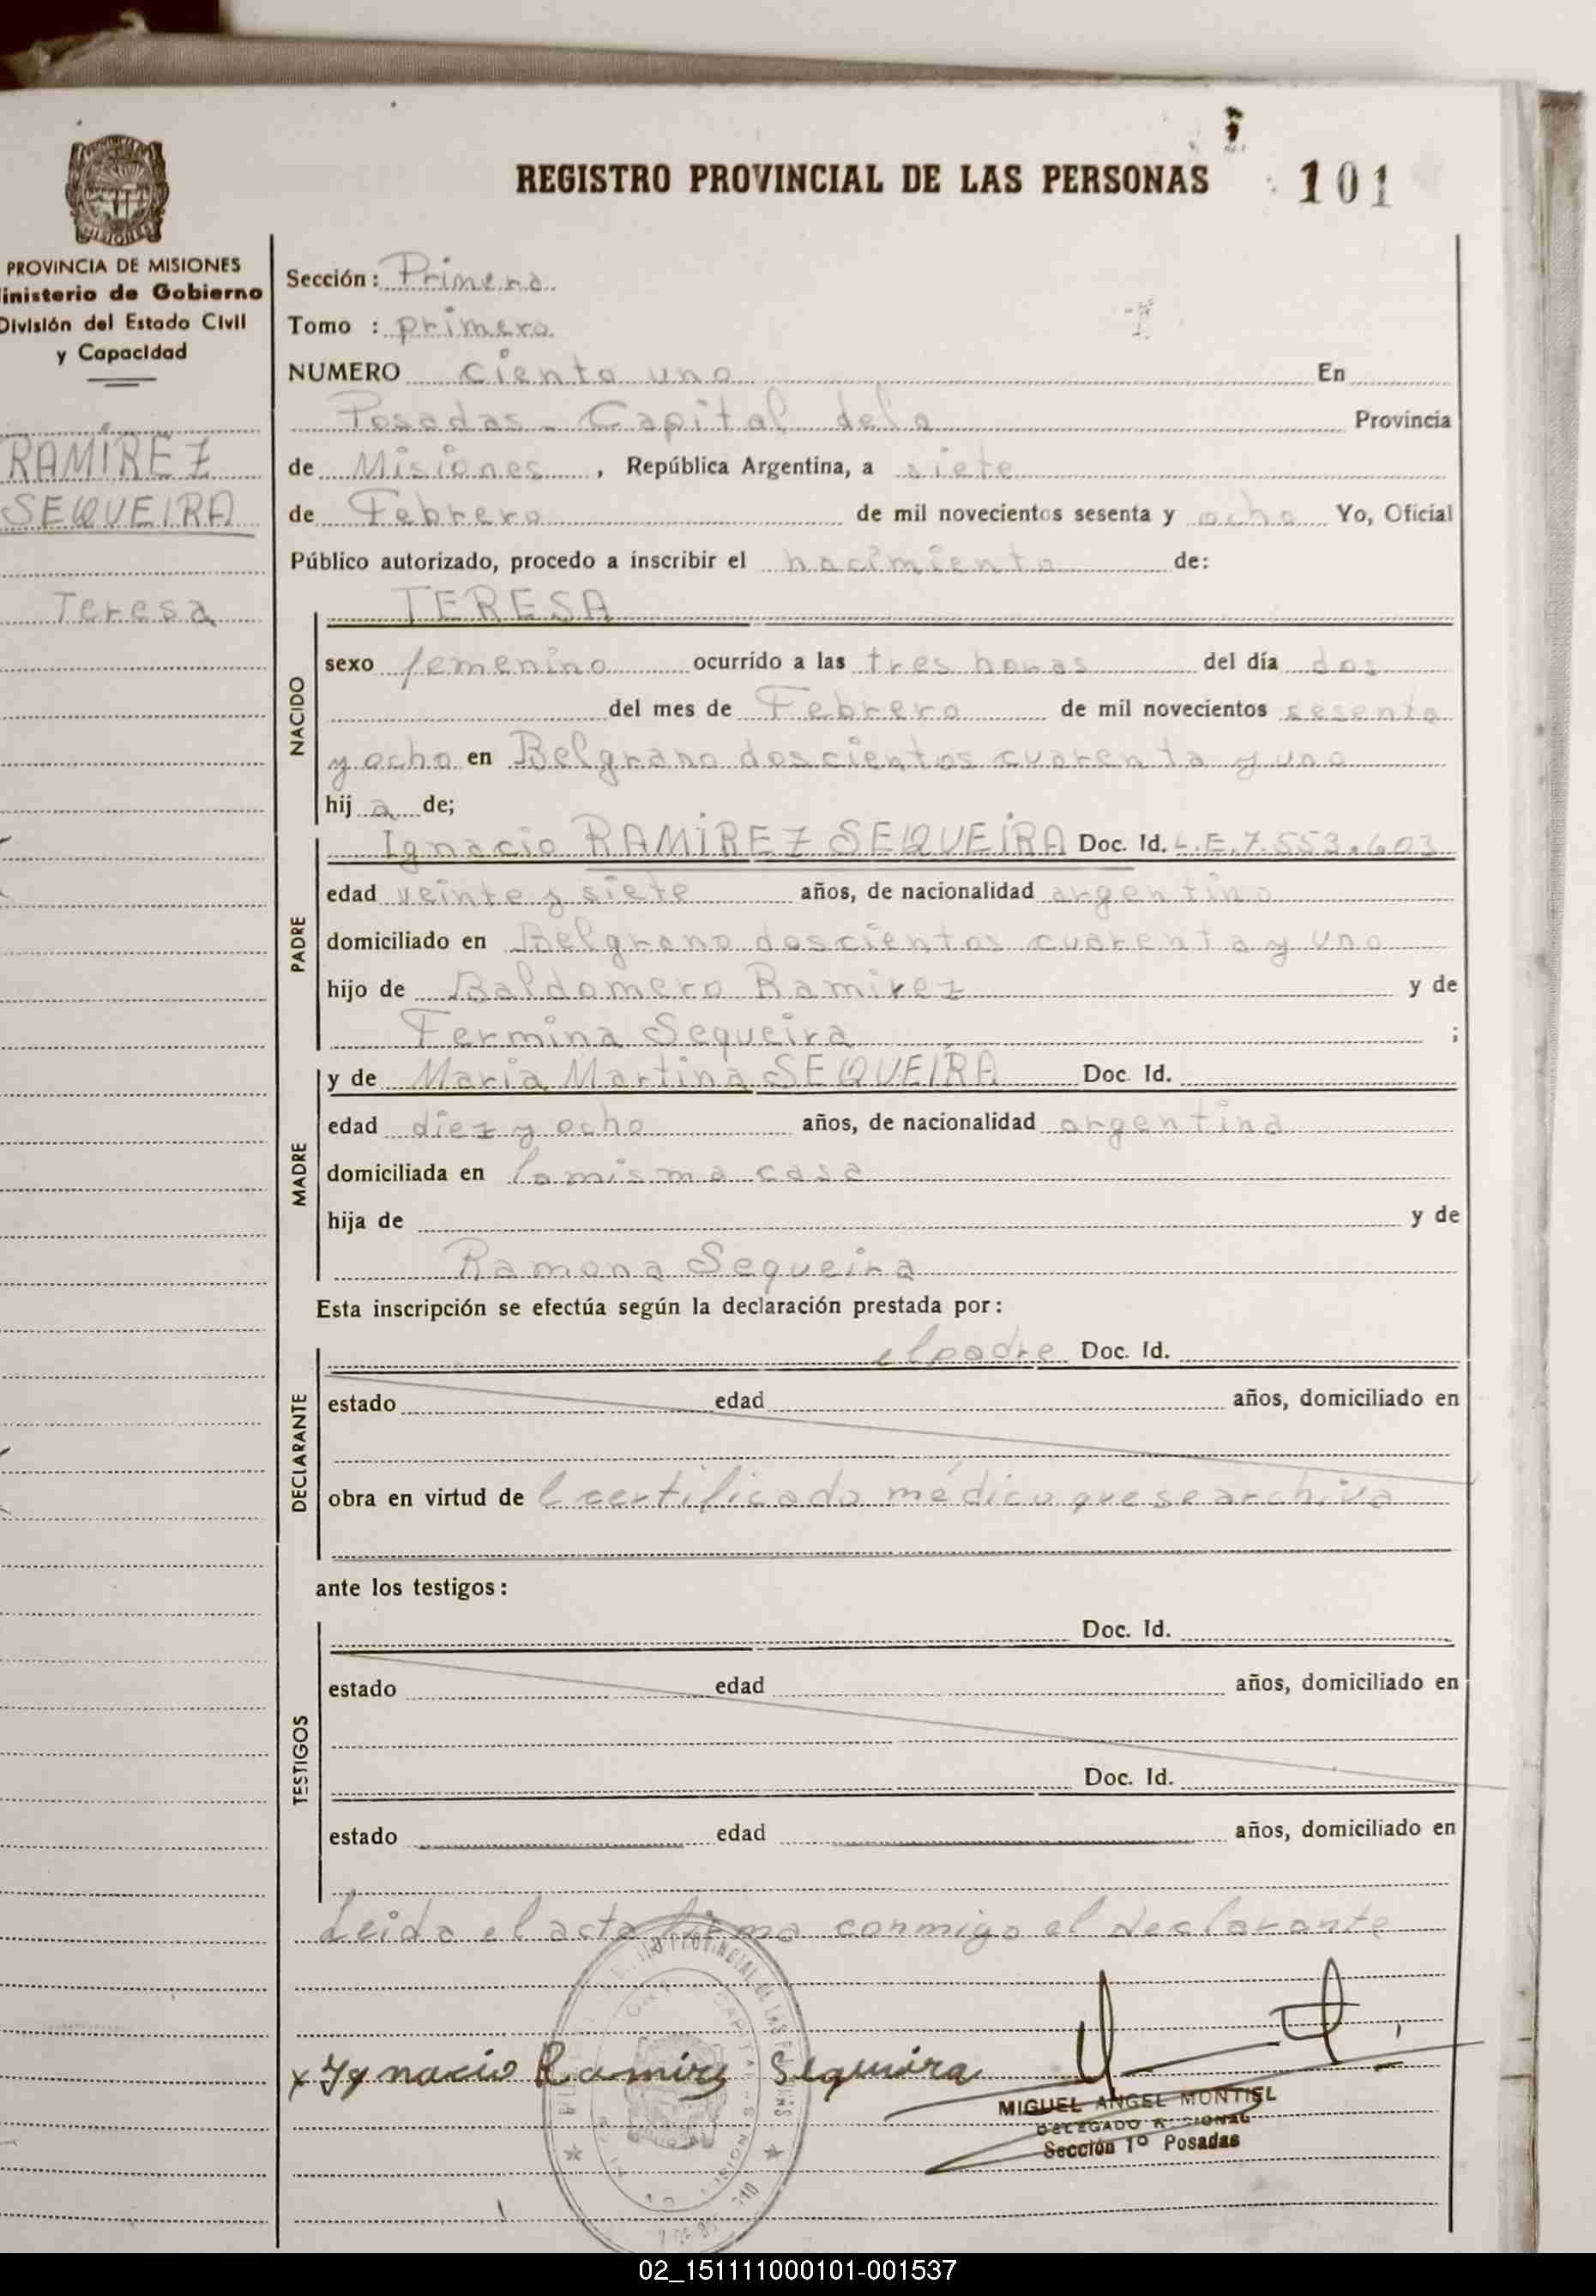 REGISTRO PROVINCIAL DE LAS PERSONAS 101
PROVINCIA DE MISIONES
inisterio de Gobierno
División del Estado Civil
y Capacidad
RAMÍREZ
SEQUEIRA
Teresa
Sección: Primera
Tomo : primero
NUMERO ciento uno En
Posadas - Capital de la Provincia
de Misiones, República Argentina, a siete
de Febrero de mil novecientos sesenta y ocho Yo, Oficial
Público autorizado, procedo a inscribir el nacimiento de:
NACIDO
TERESA
sexo femenino ocurrido a las tres horas del día dos
del mes de Febrero de mil novecientos sesenta
y ocho en Belgrano doscientos cuarenta y uno
hij a de;
PADRE
Ignacio RAMÍREZ SEQUEIRA Doc. Id. L.E.7.553.603
edad veinte y siete años, de nacionalidad argentino
domiciliado en Belgrano doscientos cuarenta y uno
hijo de Baldomero Ramirez y de
Fermina Sequeira ;
MADRE
y de María Martina SEQUEIRA Doc. Id.
edad diez y ocho años, de nacionalidad argentina
domiciliada en la misma casa
hija de y de
Ramona Sequeira
Esta inscripción se efectúa según la declaración prestada por:
DECLARANTE
el padre Doc. Id.
estado edad años, domiciliado en
obra en virtud de l certificado médico que se archiva
ante los testigos:
TESTIGOS
Doc. Id.
estado edad años, domiciliado en
Doc. Id.
estado edad años, domiciliado en
Leido el acta firma conmigo el declarante
x Ygnacio Ramirez Sequeira
MIGUEL ANGEL MONTIEL
DELEGADO
Sección 1º Posadas
02_151111000101-001537